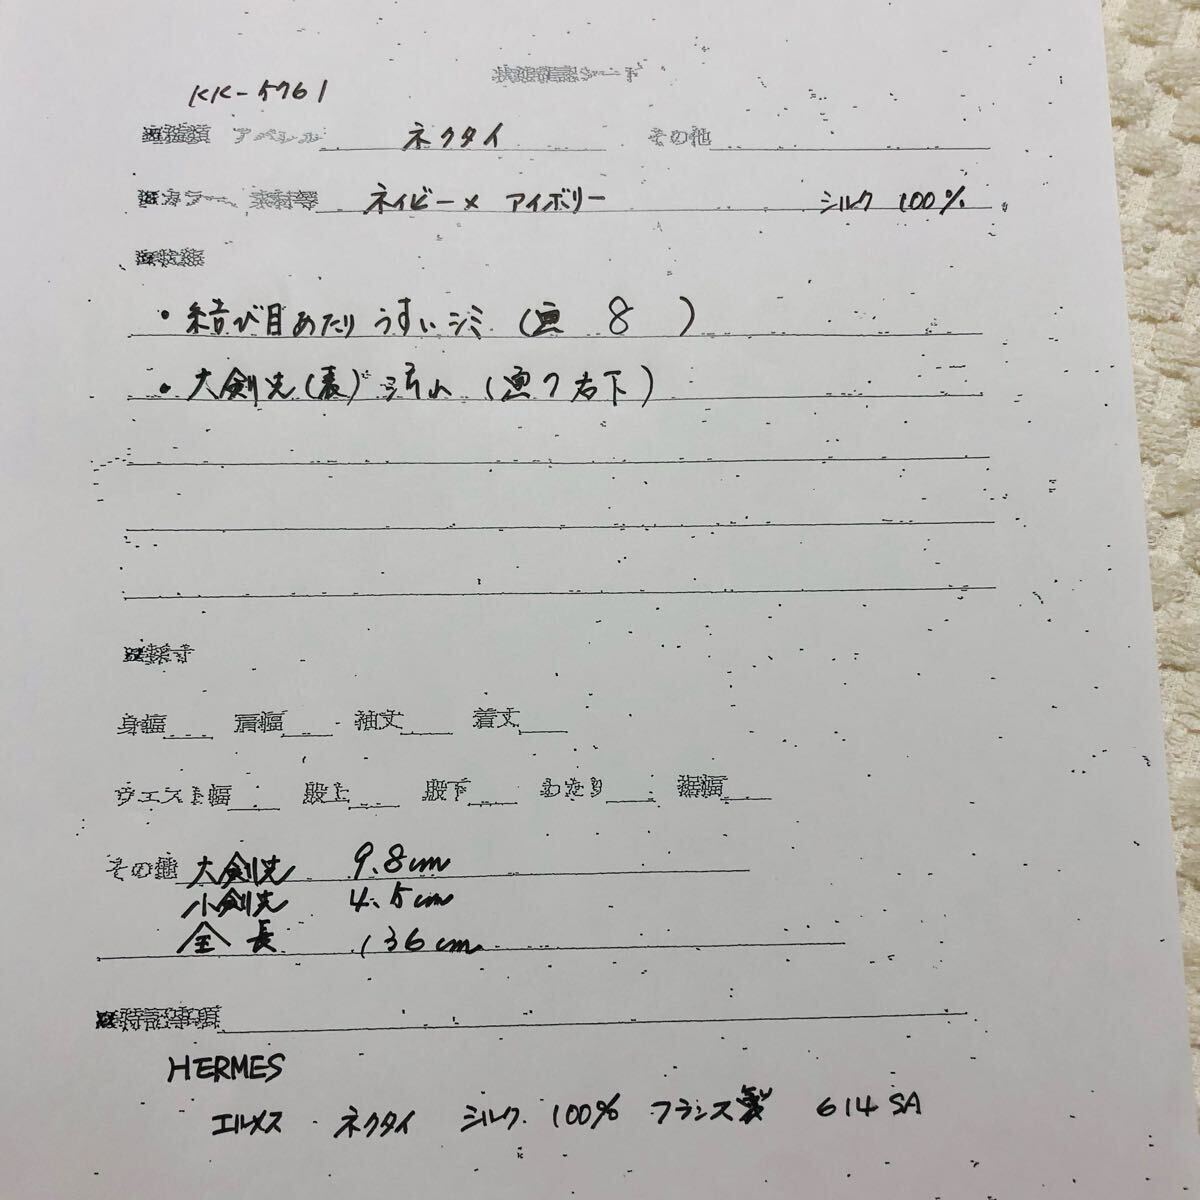 状態確認シート
KK-5761
※種類 アパレル ネクタイ その他
※カラー、素材等 ネイビー×アイボリー シルク 100%
※状態
・結び目あたり うすいシミ (画 8 )
・大剣先(裏)汚れ (画7右下)
※採寸
身幅 肩幅 袖丈 着丈
ウエスト幅 股上 股下 わたり 裾幅
その他 大剣先 9.8cm
小剣先 4.5cm
全長 136cm
※特記事項
HERMES
エルメス ネクタイ シルク 100% フランス製 614 SA